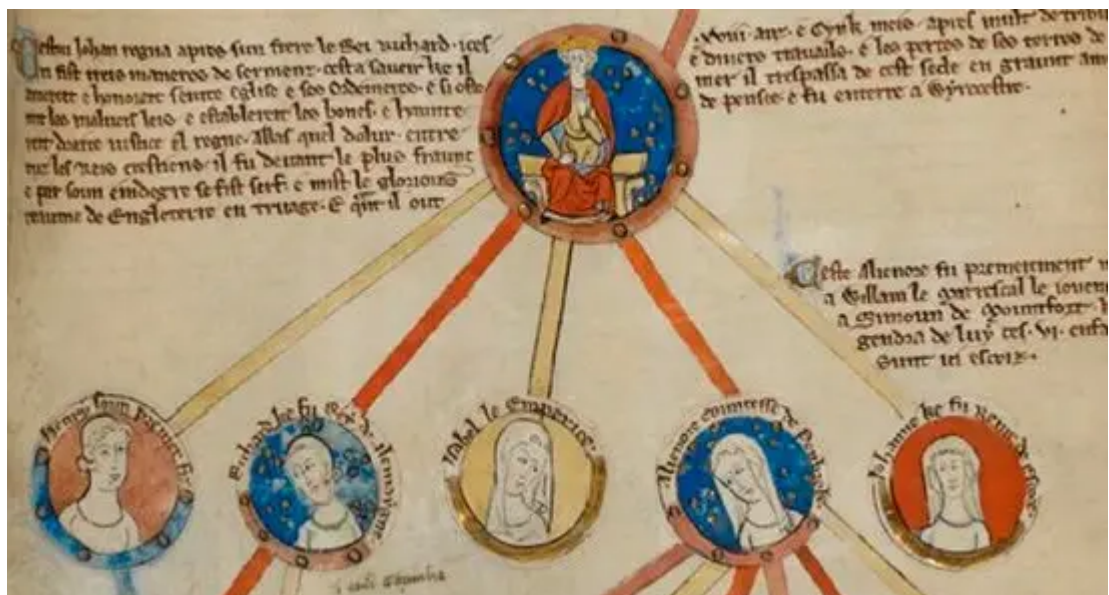 Cestui Iohan regna apres sun frere le Rei Richard · icest
en fist treis maneres de serment · cest a saueir ke il
amereit e honoreit seinte eglise e ses ordeineres · e si oste
rit les malueis leis · e establereit les bones · e haunte
reit dreite iustice el regne · allas quel dolur · entre
tuz les reis crestiens · il fu deuant le plus fraunc
e par soun eindegre se fist serf · e mist le glorious
reiume de Engleterre en truage · E quant il out
. xviii · anz · e Cynk meis · apres mult de tribu
e diuers trauails · e les pertes de ses terres de
mer il trespassa de cest secle en graunt am
de pensee · e fu enterre a Wyrcestre ·
Ceste Alienore fu premerement
a Willam le mareschal le iouene
a Simoun de Mountfort ·
gendra de luy ces · vi · enfa
sunt ici escriz ·
Henri soun premer fiz
Richard ke fu Rei de Alemayne
Ysabel le Emperice
Alienore countesse de Penbrok
Iohanne ke fu reine de escoce